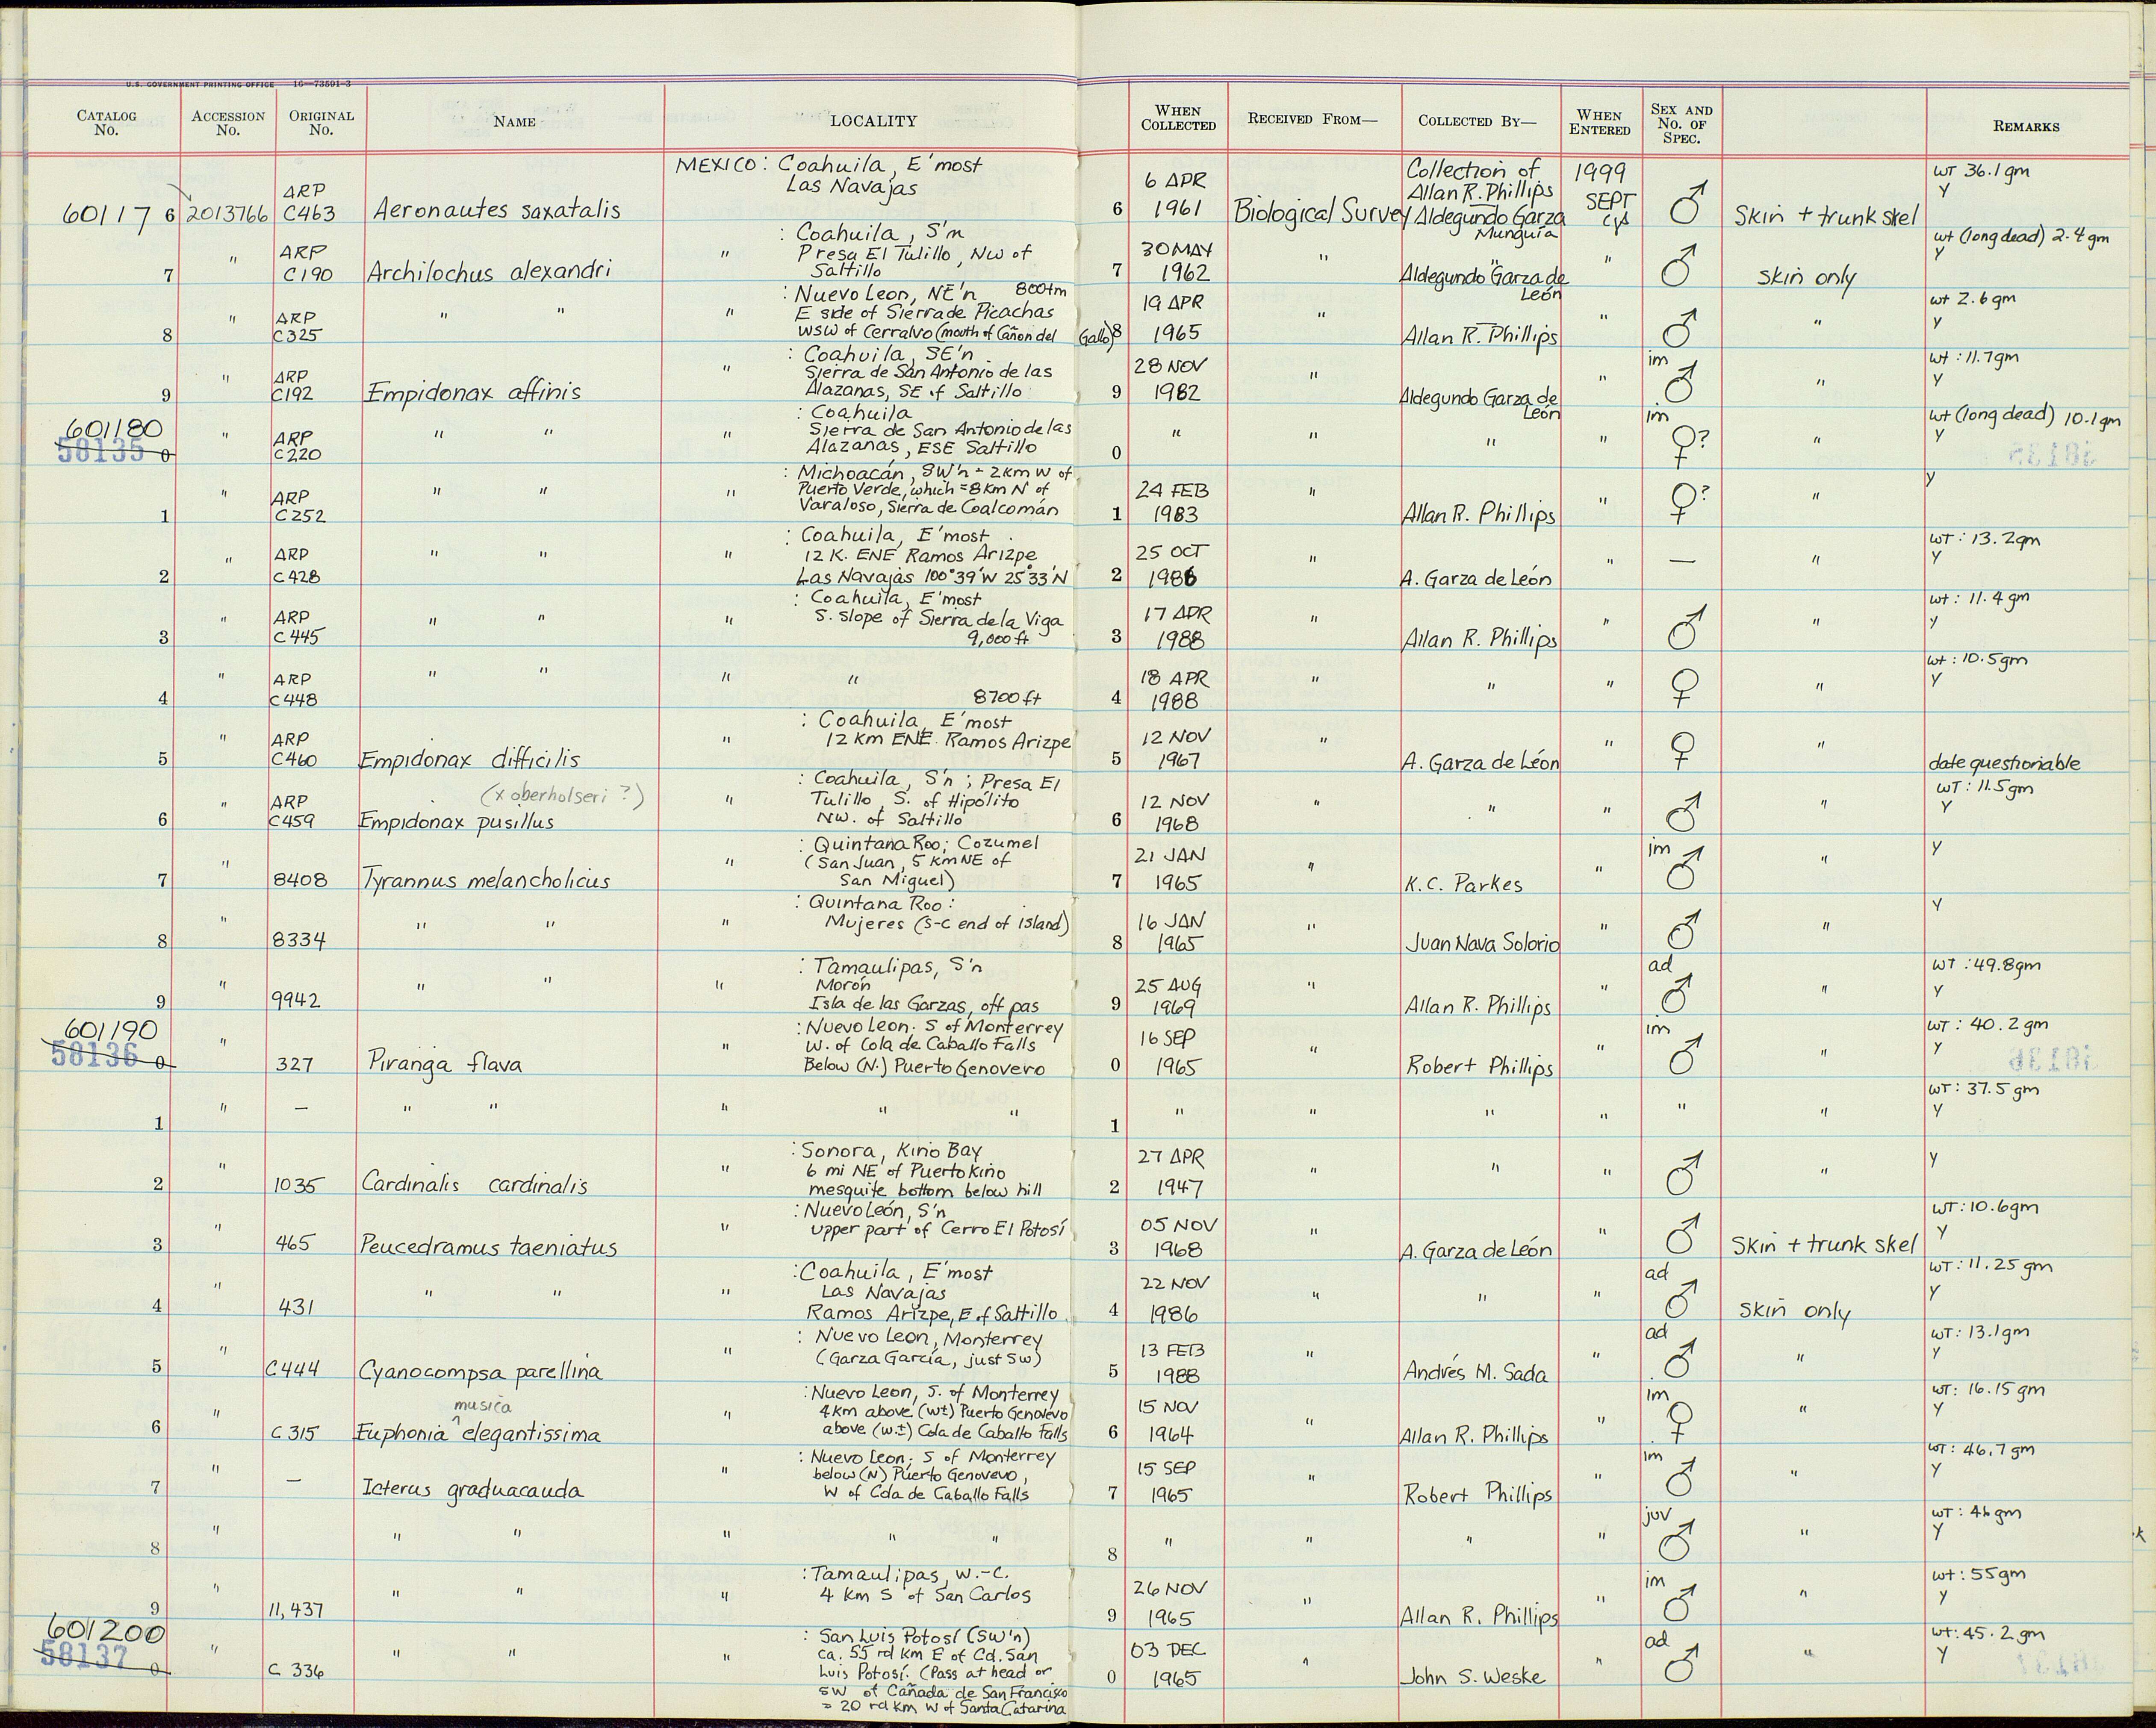 U.S. GOVERNMENT PRINTING OFFICE 16—73591-3
CATALOG No. ACCESSION No. ORIGINAL No. NAME LOCALITY WHEN COLLECTED RECEIVED FROM— COLLECTED BY— WHEN ENTERED SEX AND No. OF SPEC. REMARKS
MEXICO: Coahuila, E'most
Las Navajas
60117 6 2013766 ARP C463 Aeronautes saxatalis 6 6 APR 1961 Biological Survey Collection of Allan R. Phillips Aldegundo Garza Munguía 1999 SEPT ♂ Skin + trunk skel wt 36.1 gm Y
: Coahuila, S'n
Presa El Tulillo, NW of
Saltillo
7 " ARP C190 Archilochus alexandri " 7 30 MAY 1962 " Aldegundo Garza de León " ♂ skin only wt (long dead) 2.4 gm Y
: Nuevo Leon, NE'n 800±m
E side of Sierra de Picachas
WSW of Cerralvo (mouth of Cañon del Gallo)
8 " ARP C325 " " " 8 19 APR 1965 " Allan R. Phillips " ♂ " wt 2.6 gm Y
: Coahuila, SE'n
Sierra de San Antonio de las
Alazanas, SE of Saltillo
9 " ARP C192 Empidonax affinis " 9 28 NOV 1982 " Aldegundo Garza de León " im ♂ " wt: 11.7 gm Y
: Coahuila
Sierra de San Antonio de las
Alazanas, ESE Saltillo
601180 58135 0 " ARP C220 " " " 0 " " " " im ♀? " wt (long dead) 10.1 gm Y
: Michoacán, SW'n - 2 km W of
Puerto Verde, which = 8 km N of
Varaloso, Sierra de Coalcomán
1 " ARP C252 " " " 1 24 FEB 1983 " Allan R. Phillips " ♀? " Y
: Coahuila, E'most
12 K. ENE Ramos Arizpe
Las Navajas 100°39'W 25°33'N
2 " ARP C428 " " " 2 25 OCT 1986 " A. Garza de León " — " WT: 13.2gm Y
: Coahuila, E'most
S. slope of Sierra de la Viga
9,000 ft
3 " ARP C445 " " " 3 17 APR 1988 " Allan R. Phillips " ♂ " wt: 11.4 gm Y
4 " ARP C448 " " " " 8700 ft 4 18 APR 1988 " " " ♀ " wt: 10.5gm Y
: Coahuila, E'most
12 km ENE Ramos Arizpe
5 " ARP C460 Empidonax difficilis " 5 12 NOV 1967 " A. Garza de León " ♀ " date questionable
: Coahuila, S'n; Presa El
Tulillo, S. of Hipólito
NW. of Saltillo
6 " ARP C459 Empidonax pusillus (x oberholseri ?) " 6 12 NOV 1968 " " " ♂ " WT: 11.5gm Y
: Quintana Roo; Cozumel
(San Juan, 5 km NE of
San Miguel)
7 " 8408 Tyrannus melancholicus " 7 21 JAN 1965 " K.C. Parkes " im ♂ " Y
: Quintana Roo:
Mujeres (S-C end of island)
8 " 8334 " " " 8 16 JAN 1965 " Juan Nava Solorio " ♂ " Y
: Tamaulipas, S'n
Morón
Isla de las Garzas, off pas
9 " 9942 " " " 9 25 AUG 1969 " Allan R. Phillips " ad ♂ " WT: 49.8gm Y
: Nuevo Leon. S of Monterrey
W. of Cola de Caballo Falls
Below (N.) Puerto Genovero
601190 58136 0 " 327 Piranga flava " 0 16 SEP 1965 " Robert Phillips " im ♂ " WT: 40.2 gm Y
1 " — " " " " " 1 " " " " " " WT: 37.5 gm Y
: Sonora, Kino Bay
6 mi NE of Puerto Kino
mesquite bottom below hill
2 " 1035 Cardinalis cardinalis " 2 27 APR 1947 " " " ♂ " Y
: Nuevo León, S'n
upper part of Cerro El Potosí
3 " 465 Peucedramus taeniatus " 3 05 NOV 1968 " A. Garza de León " ♂ Skin + trunk skel WT: 10.6gm Y
: Coahuila, E'most
Las Navajas
Ramos Arizpe, E of Saltillo
4 " 431 " " " 4 22 NOV 1986 " " " ad ♂ skin only WT: 11.25 gm Y
: Nuevo Leon, Monterrey
(Garza García, just SW)
5 " C444 Cyanocompsa parellina " 5 13 FEB 1988 " Andrés M. Sada " ad ♂ " WT: 13.1gm Y
: Nuevo Leon, S. of Monterrey
4 km above (W±) Puerto Genovevo
above (W.±) Cola de Caballo Falls
6 " C 315 Euphonia ^musica elegantissima " 6 15 NOV 1964 " Allan R. Phillips " im ♀ " WT: 16.15 gm Y
: Nuevo Leon; S of Monterrey
below (N) Puerto Genovevo,
W of Cola de Caballo Falls
7 " — Icterus graduacauda " 7 15 SEP 1965 " Robert Phillips " im ♂ " WT: 46.7 gm Y
8 " " " " " " 8 " " " " juv ♂ " WT: 46 gm Y
: Tamaulipas, W.-C.
4 km S of San Carlos
9 " 11,437 " " " 9 26 NOV 1965 " Allan R. Phillips " im ♂ " wt: 55gm Y
: San Luis Potosí (SW'n)
ca. 55 rd km E of Cd. San
Luis Potosí. (Pass at head or
SW of Cañada de San Francisco
= 20 rd km W of Santa Catarina
601200 58137 0 " C 336 " " " 0 03 DEC 1965 " John S. Weske " ad ♂ " wt: 45.2 gm Y